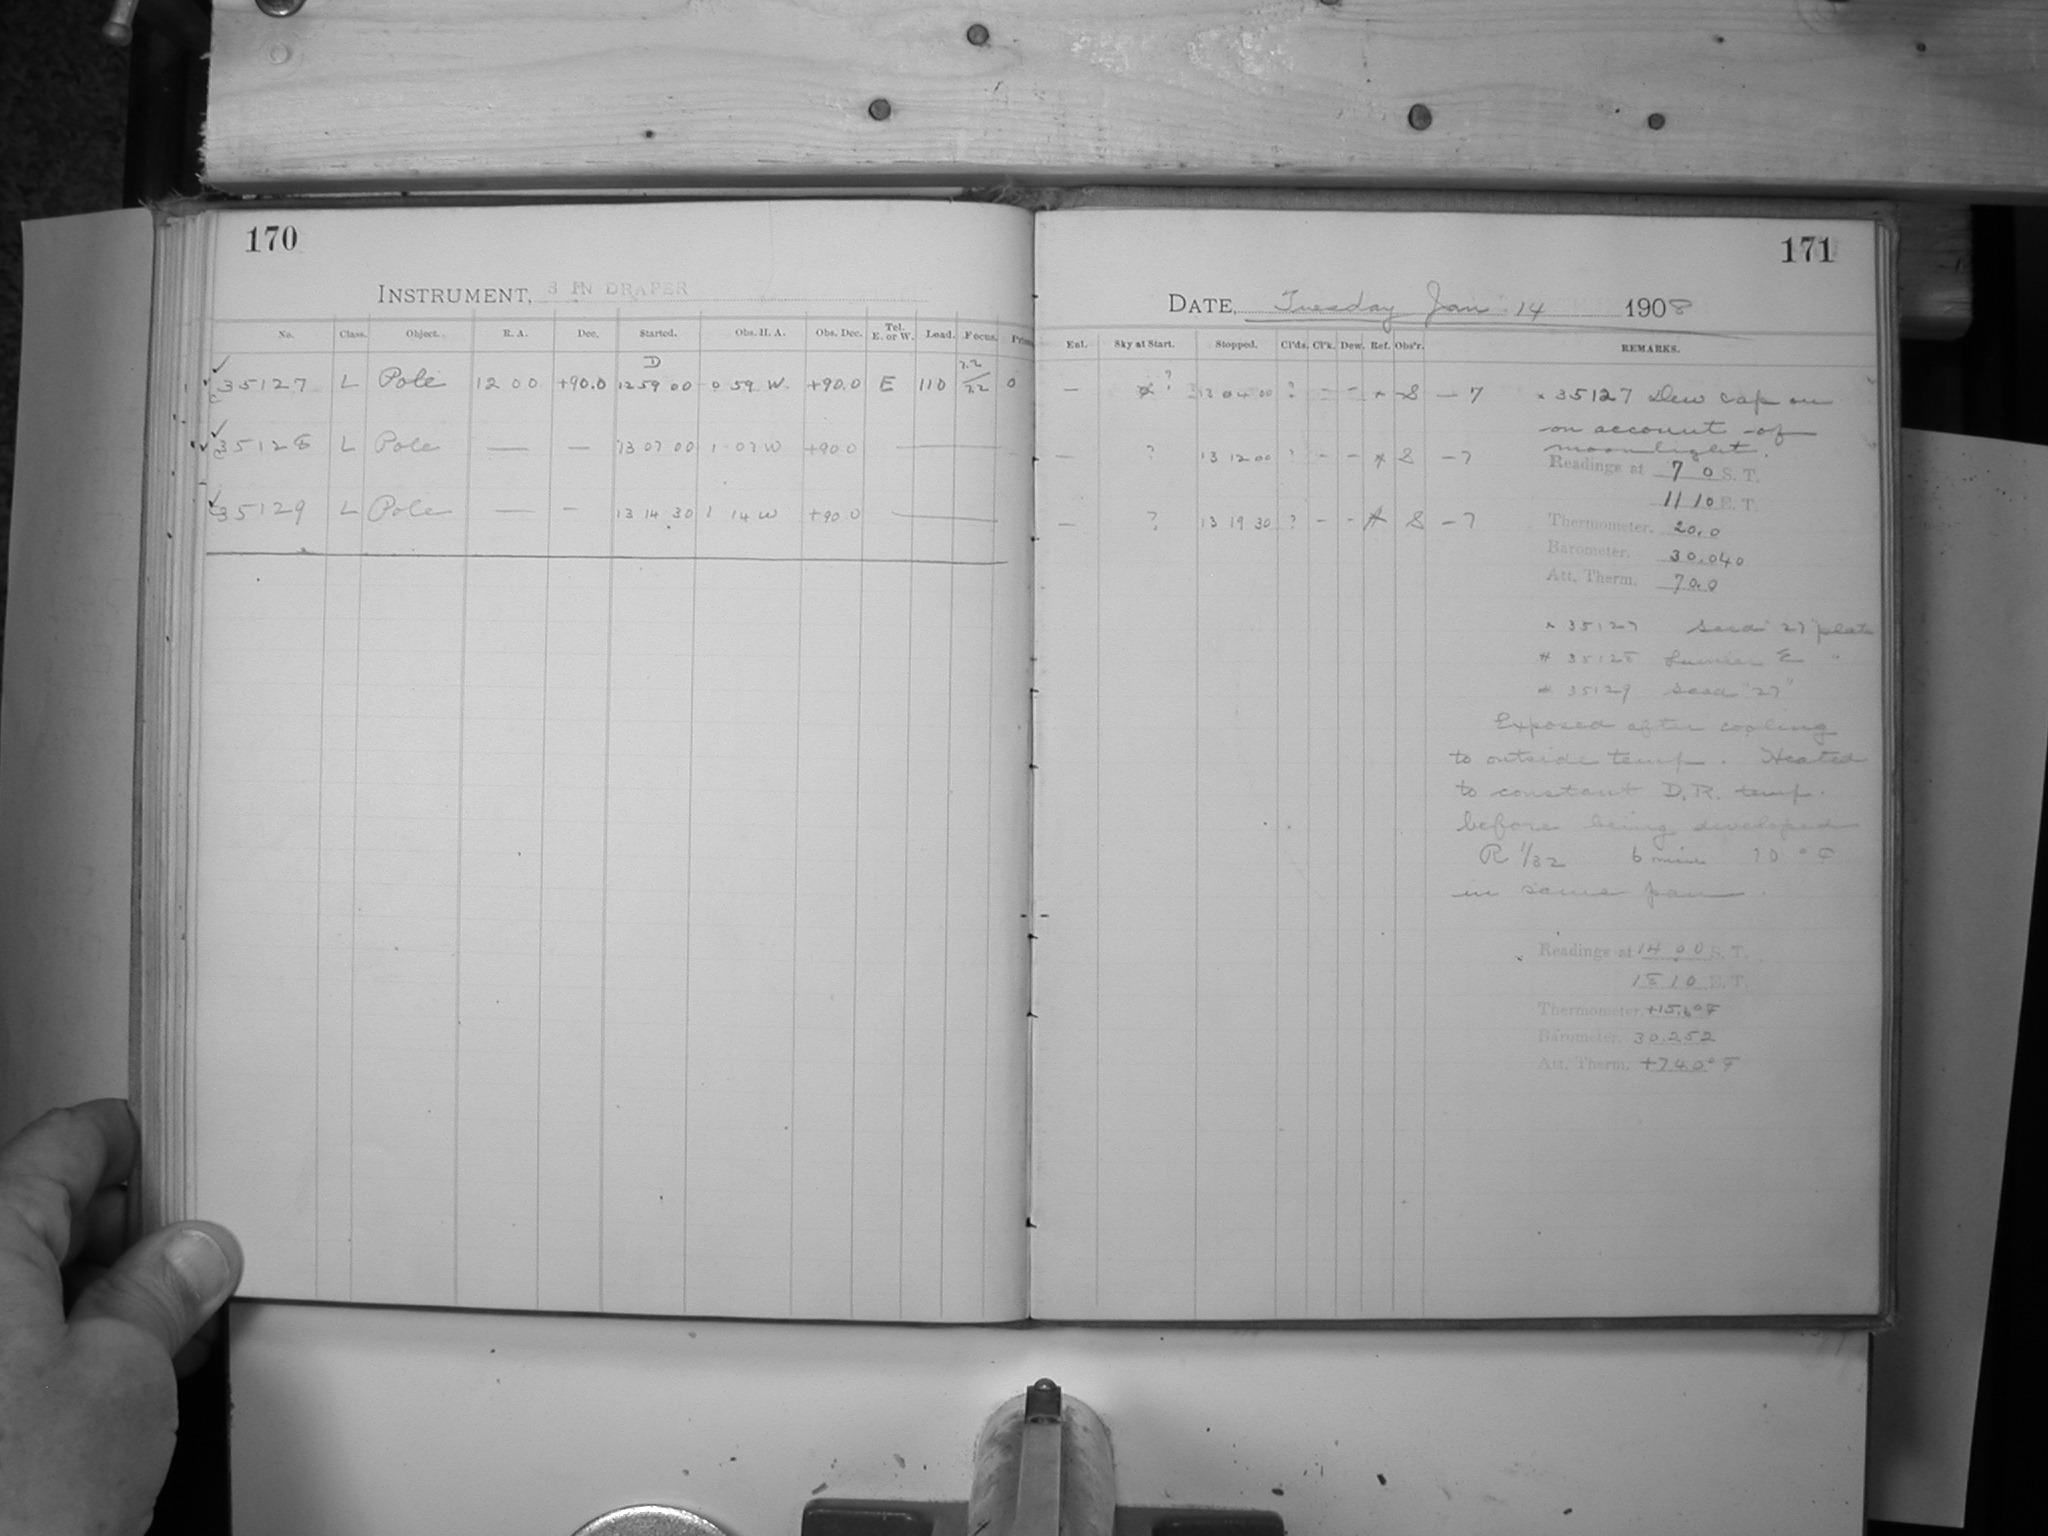 170
INSTRUMENT, 8 IN DRAPER
No. Class. Object. R. A. Dec. Started. Obs. H. A. Obs. Dec. Tel. E. or W. Lead. Focus.
35127 L Pole 12 00 +90.0 D 12 59 00 0 59 W. +90.0 E 110 7.2/7.2 0
35128 L Pole — — 13 07 00 1 07 W +90 0 —
35129 L Pole — — 13 14 30 1 14 W +90 0 —
171
DATE, Tuesday Jan 14 1908
Ent. Sky at Start. Stopped. Cl'ds. Cl'k. Dew. Ref. Obs'r. REMARKS.
— ? 13 04 00 ? - - * S — 7
— ? 13 12 00 ? - - * S — 7
— ? 13 19 30 ? - - * S — 7
* 35127 Dew cap on
on account of
moonlight.
Readings at 7 0 S. T.
11 10 E. T.
Thermometer. 20.0
Barometer. 30.040
Att. Therm. 70.0
* 35127 Seed "27" plate
* 35128 E "
* 35129 Seed "27"
Exposed after cooling
to outside temp. Heated
to constant D.R. temp.
before being developed
R 1/32 6 min 70 ° F
in same pan.
Readings at 14 00 S. T.
18 10 E. T.
Thermometer. +15.6° F
Barometer. 30.252
Att. Therm. +74.0° F